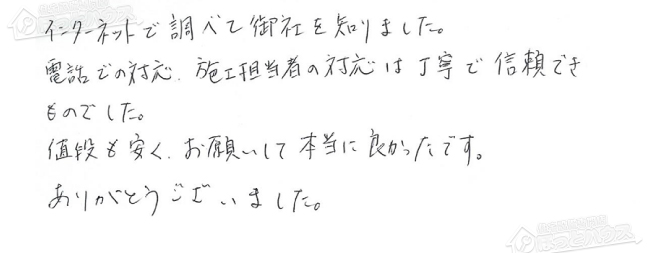 インターネットで調べて御社を知りました。
電話での対応、施工担当者の対応は丁寧で信頼でき
ものでした。
値段も安く、お願いして本当に良かったです。
ありがとうございました。